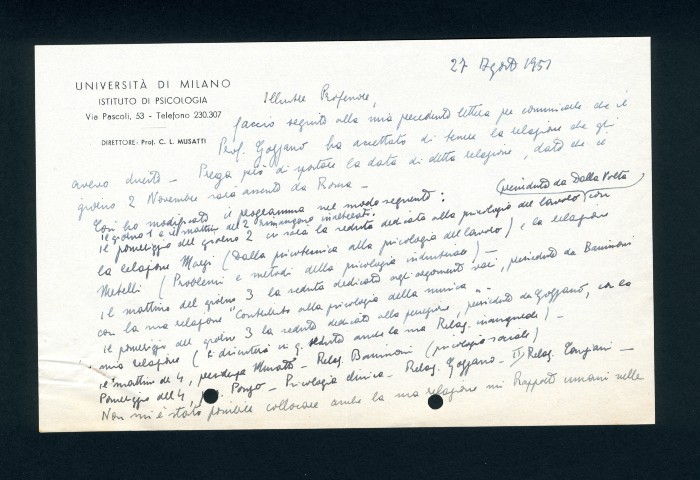 UNIVERSITÀ DI MILANO
ISTITUTO DI PSICOLOGIA
Via Pascoli, 53 - Telefono 230.307
DIRETTORE: Prof. C. L. MUSATTI
27 Agosto 1951
Illustre Professore,
faccio seguito alla mia precedente lettera per comunicarle che il
Prof. Gozzano ha accettato di tenere la relazione che gli
avevo chiesto - Prega però di spostare la data di detta relazione, dato che il
giorno 2 Novembre sarà assente da Roma -
Così ho modificato il programma nel modo seguente:
il giorno 1 e il mattino del 2 rimangono inalterati.
(presieduta da Dalla Volta
Il pomeriggio del giorno 2 ci sarà la seduta dedicata alla psicologia del lavoro con
la relazione Marzi (Dalla psicotecnica alla psicologia del lavoro) e la relazione
Metelli (Problemi e metodi della psicologia industriale) -
Il mattino del giorno 3 la seduta dedicata agli argomenti vari, presieduta da Banissoni
con la sua relazione "Contributo alla psicologia della musica" -
Il pomeriggio del giorno 3 la seduta dedicata alla percezione, presieduta da Gozzano, con la
sua relazione (si discuterà in q. seduta anche la sua Relaz. inaugurale) -
il mattino del 4, presidenza Musatti - Relaz. Banissoni (psicologia sociale)
Pomeriggio del 4, Ponzo - Psicologia clinica - Relaz. Gozzano - II Relaz.
Non mi è stato possibile collocare anche la sua relazione sui Rapporti umani nelle